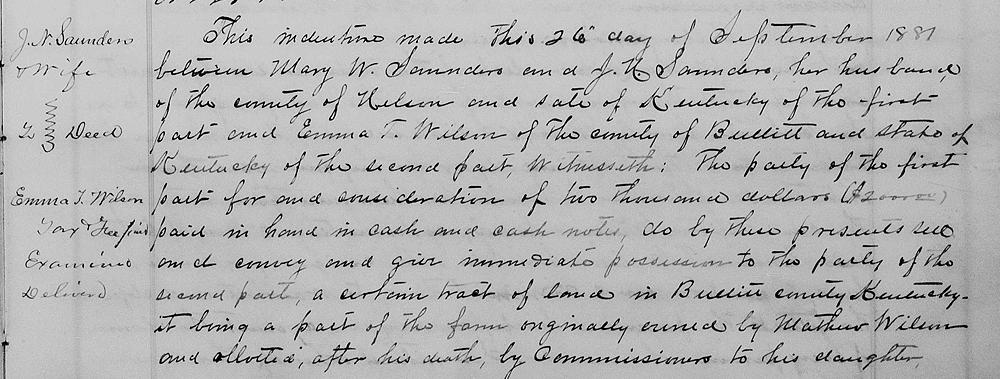 J. N. Saunders
& Wife
To Deed
Emma T. Wilson
Tax & Fee paid
Examined
Delivered
This indenture made this 26 day of September 1881
between Mary W. Saunders and J. N. Saunders, her husband
of the county of Nelson and sate of Kentucky of the first
part and Emma T. Wilson of the county of Bullitt and state of
Kentucky of the second part, Witnesseth: The party of the first
part for and consideration of two thousand dollars ($2000.00)
paid in hand in cash and cash notes, do by these presents sell
and convey and give immediate possession to the party of the
second part, a certain tract of land in Bullitt county Kentucky-
it being a part of the farm originally owned by Mathew Wilson
and alloted, after his death, by Commissioners to his daughter,